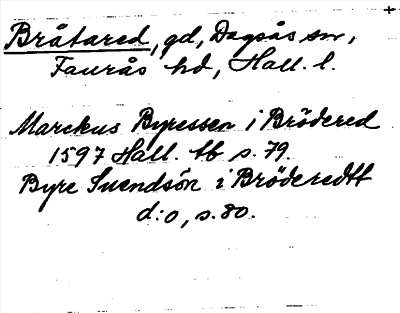 Bråtared, gd, Dagsås sn,
Faurås hd, Hall. l.
Marckus Byressen i Brödered
1597 Hall. tb s. 79.
Byre Suendsön i Bröderedtt
d:o, s. 80.